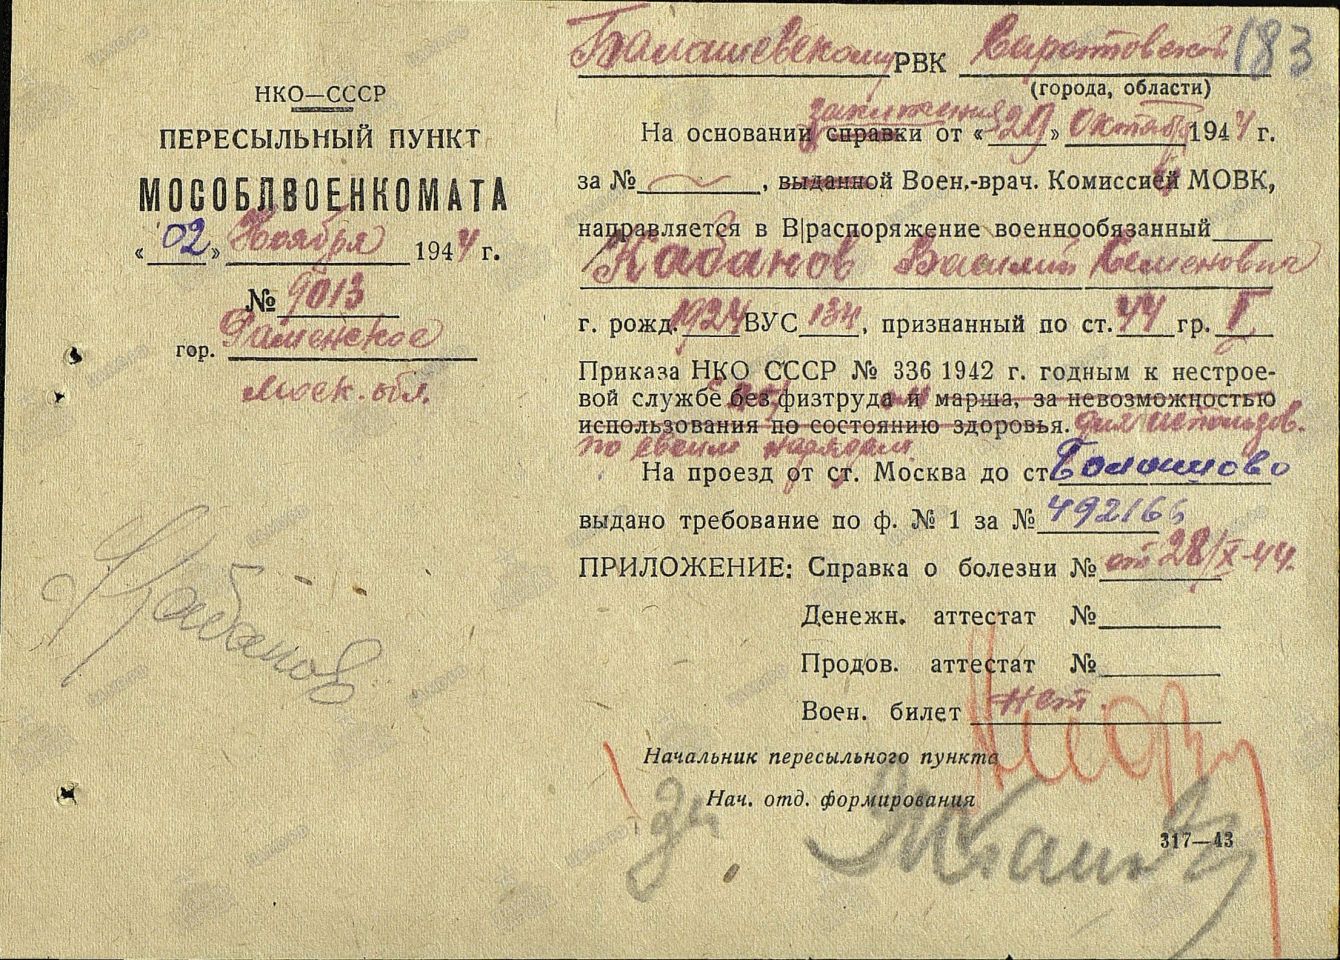 НКО—СССР
ПЕРЕСЫЛЬНЫЙ ПУНКТ
МОСОБЛВОЕНКОМАТА
«02» Ноября 1944 г.
№ 9013
гор. Раменское
Моск. обл.
Кабанов
183
Балашевскому РВК Саратовской
(города, области)
заключения
На основании справки от «29» Октября 1944 г.
за № , выданной Воен.-врач. Комиссией МОВК,
направляется в В|распоряжение военнообязанный
Кабанов Василий Семенович
г. рожд. 1924 ВУС 134, признанный по ст. 44 гр. I
Приказа НКО СССР № 336 1942 г. годным к нестрое-
вой службе без физтруда и марша, за невозможностью
использования по состоянию здоровья. для использов.
по своим нарядам.
На проезд от ст. Москва до ст. Балашово
выдано требование по ф. № 1 за № 492166
ПРИЛОЖЕНИЕ: Справка о болезни № от 28/X-44.
Денежн. аттестат №
Продов. аттестат №
Воен. билет нет.
Начальник пересыльного пункта
Нач. отд. формирования
317—43